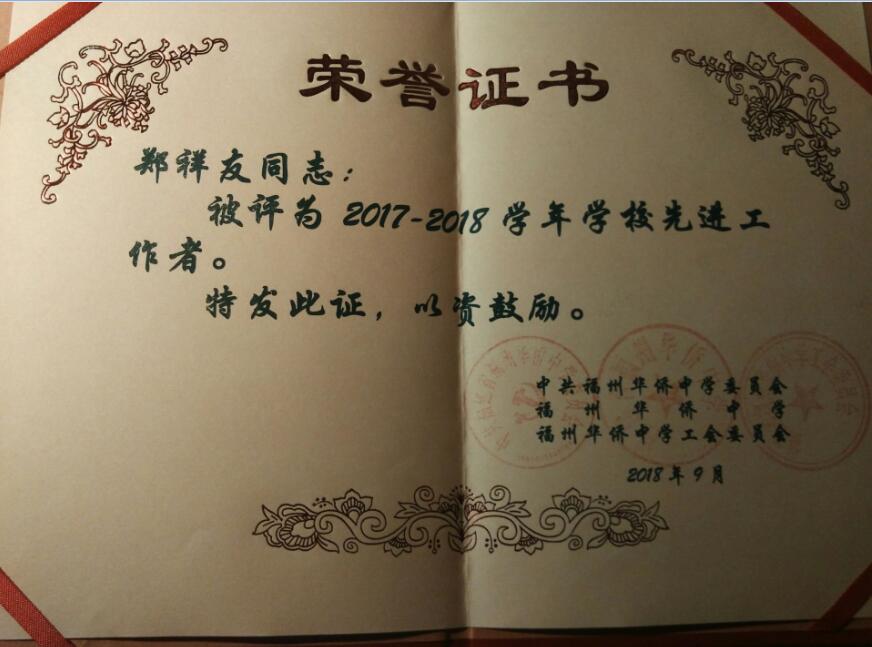 荣誉证书
郑祥友同志：
被评为 2017-2018 学年学校先进工
作者。
特发此证，以资鼓励。
中共福州华侨中学委员会
福州华侨中学
福州华侨中学工会委员会
2018年9月